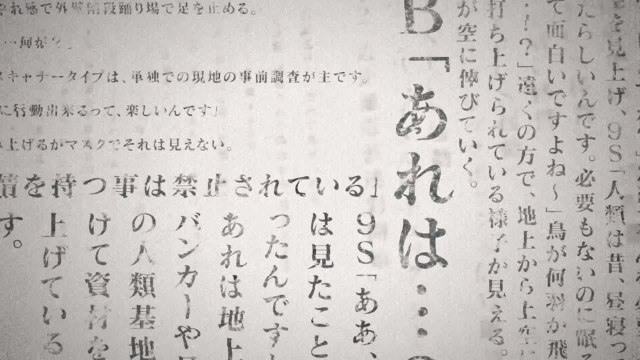 感で外壁階段踊り場で足を止める。
…何が？」
スキャナータイプは、単独での現地の事前調査が主です。
に行動出来るって、楽しいんです」
上げるがマスクでそれは見えない。
情を持つ事は禁止されている」
を見上げ、9S「人類は昔、昼寝っ
たらしいんです。必要もないのに眠
て面白いですよね～」鳥が何羽か飛
…！？」遠くの方で、地上から上空
打ち上げられている様子が見える。
が空に伸びていく。
B「あれは…。
9S「ああ、
は見たこと
ったんです
あれは地上
バンカーや
の人類基地
けて資材を
上げている
す。